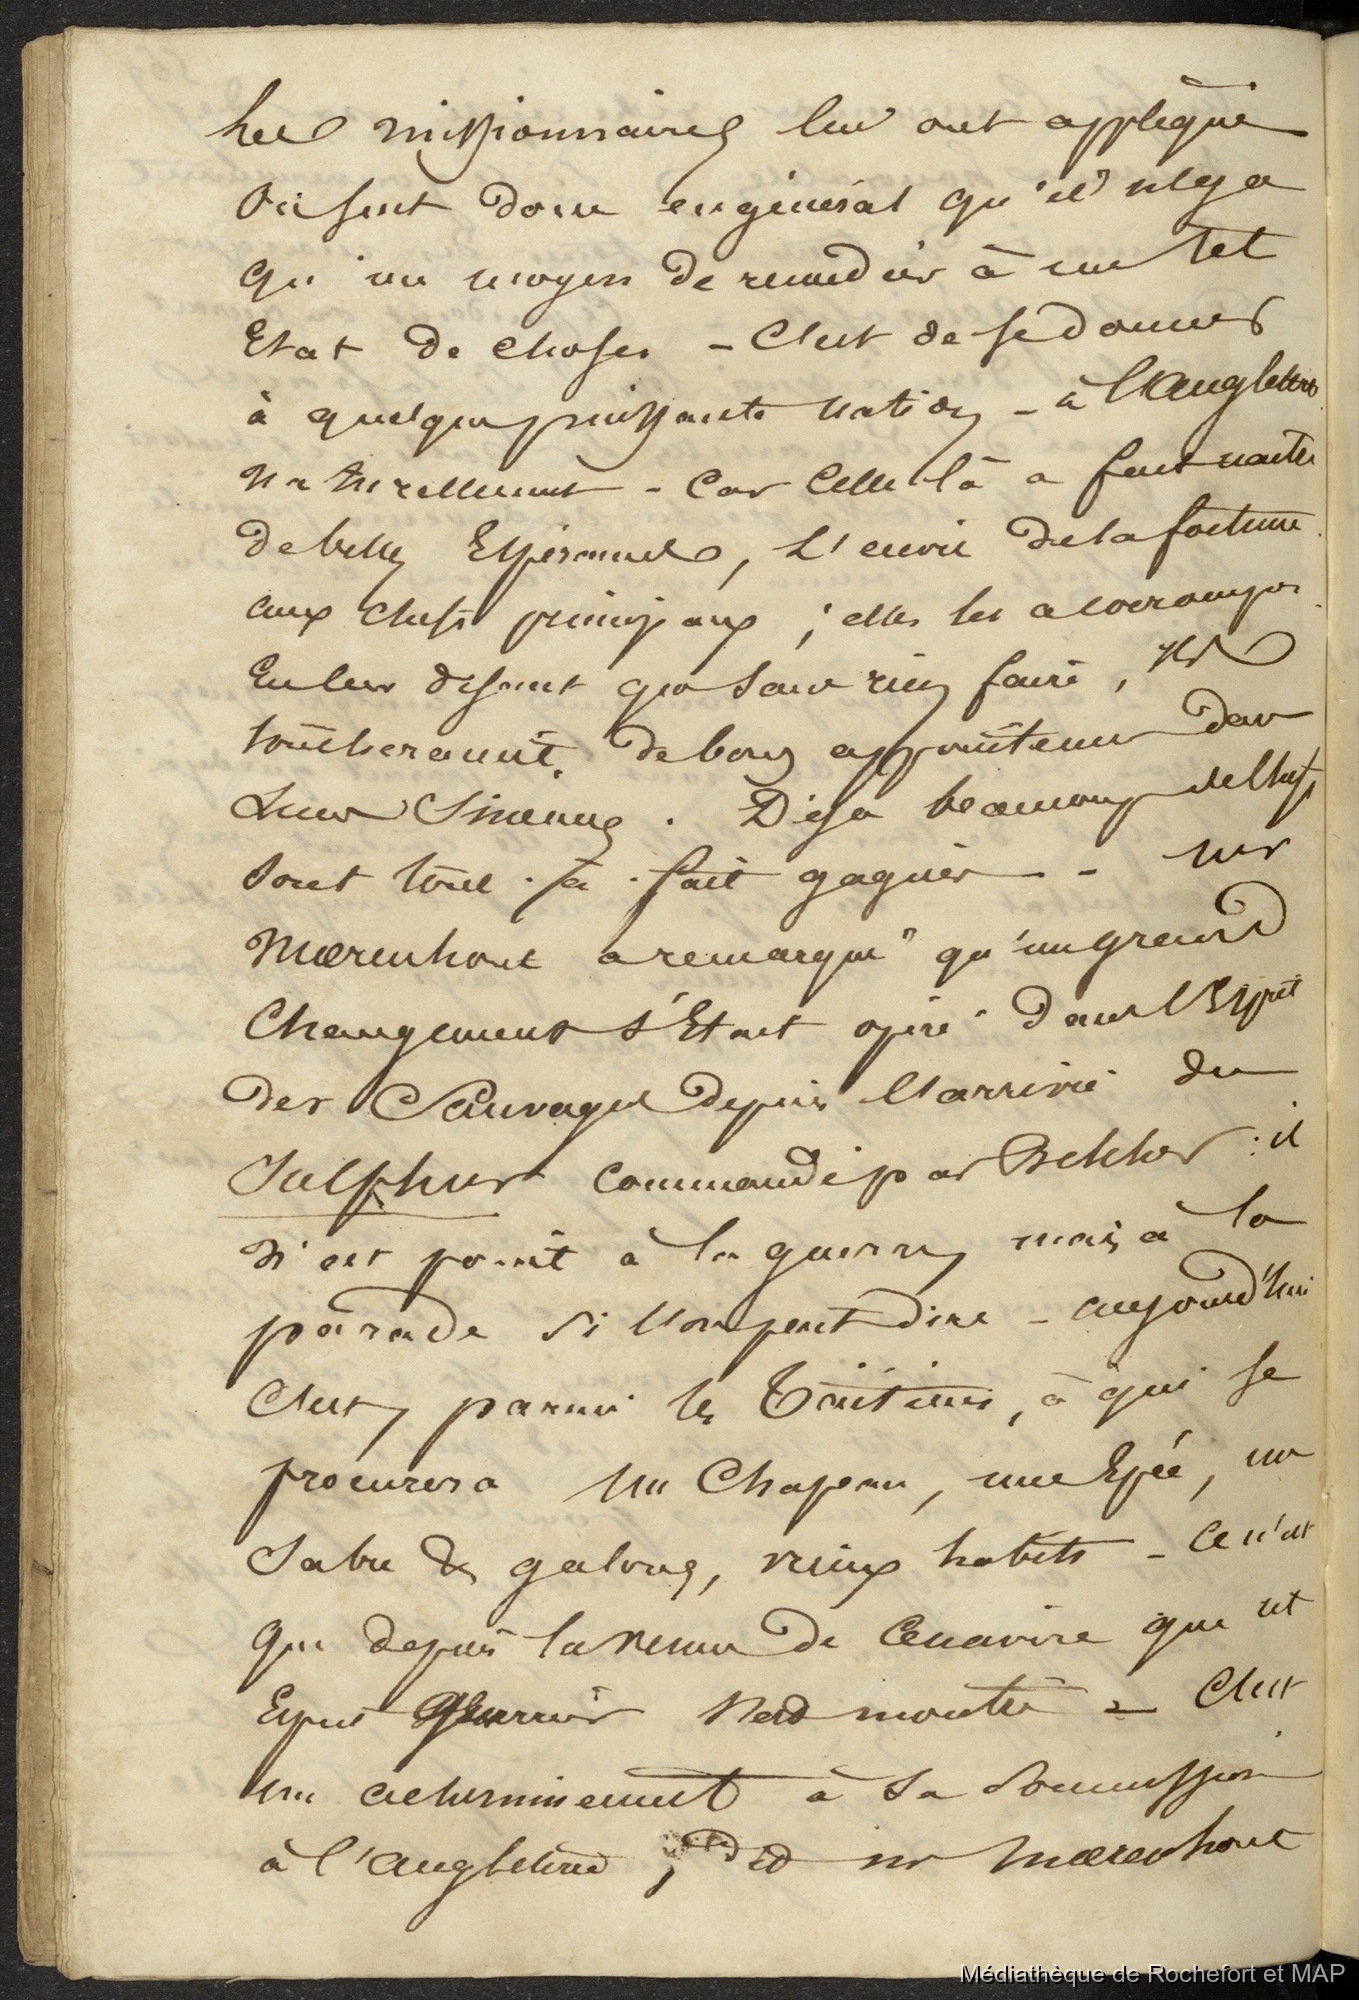 les missionnaires leur ont appliqué
on sent donc en général qu'il n'y a
qu'un moyen de remedier à un tel
Etat de choses - C'est de se donner
à quelque puissante nation - à l'angleterre
naturellement - Car Celle là a fait naitre
de belles Espérances, L'envie de la fortune
aux chefs principaux ; elle les a corrompus
En leur disant que sans rien faire, ils
toucheraient de bons appointemens dans
Leurs Sinecures. Déja beaucoup de Chefs
sont tout-à-fait gagnés - mr
Moerenhout a remarqué qu'un grand
Changement s'Etait opéré dans l'Esprit
des Sauvages depuis l'arrivée du
Sulphur commandé par Belcher : il
n'est point à la guerre, mais à la
parade si l'on peut dire - aujourd'hui
C'est, parmi les Taïtiens, à qui se
procurera un Chapeau, une Epée, un
Sabre des galons, vieux habits - Ce n'est
que depuis la venue de Ce navire que cet
Esprit guerrier s'est montré - C'est
un acheminement à sa soumission
à l'angleterre, dit mr Moerenhout
Médiathèque de Rochefort et MAP